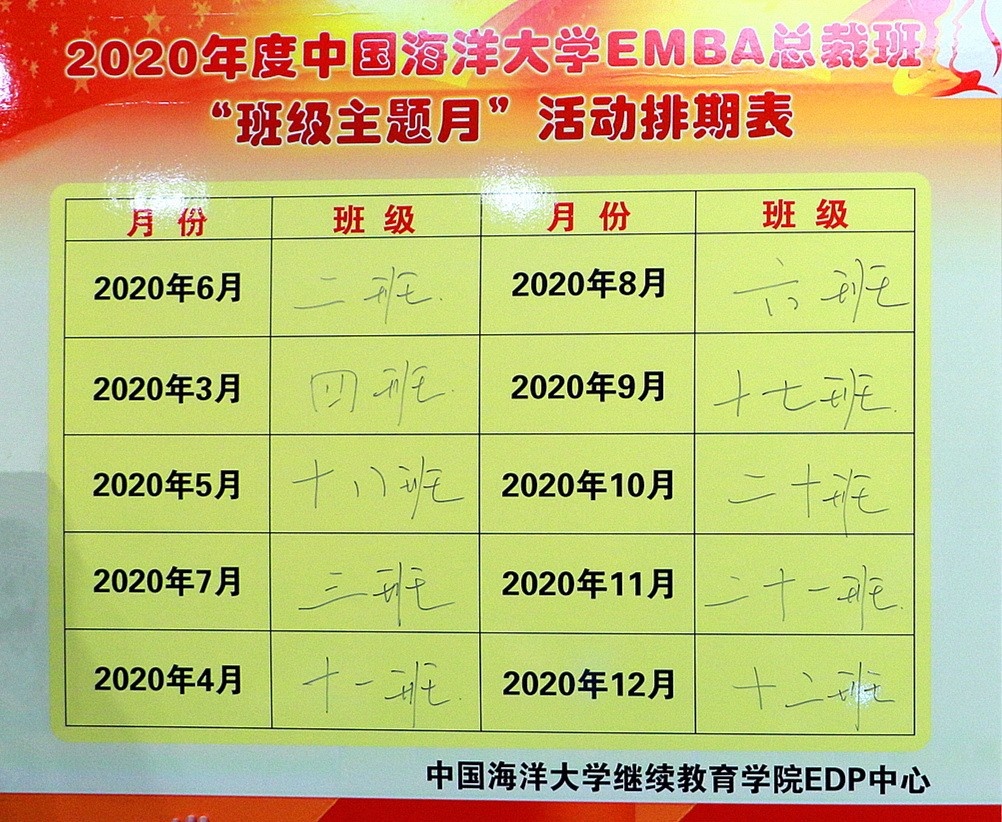 2020年度中国海洋大学EMBA总裁班
“班级主题月”活动排期表
月份 班级 月份 班级
2020年6月 二班. 2020年8月 六班
2020年3月 四班. 2020年9月 十七班.
2020年5月 十八班 2020年10月 二十班
2020年7月 三班 2020年11月 二十一班.
2020年4月 十一班. 2020年12月 十二班
中国海洋大学继续教育学院EDP中心